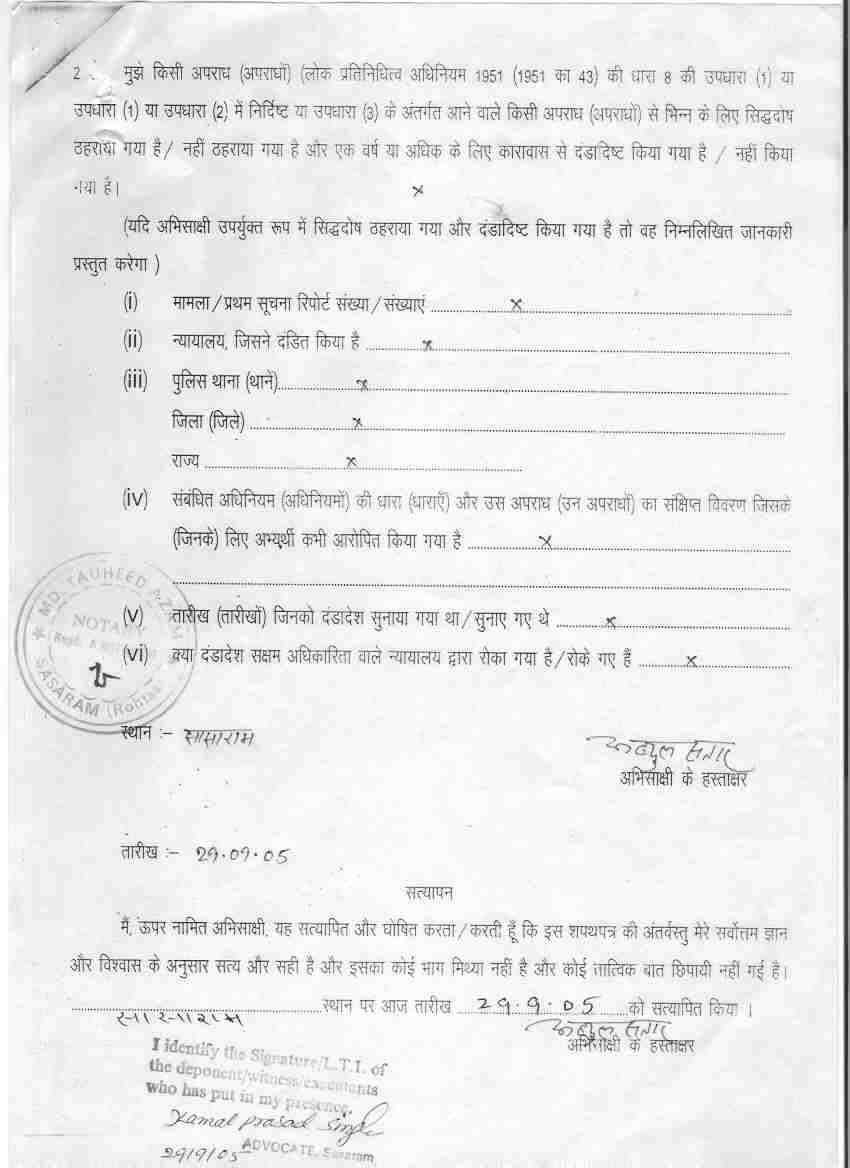 2 . मुझे किसी अपराध (अपराधों) (लोक प्रतिनिधित्व अधिनियम 1951 (1951 का 43) की धारा 8 की उपधारा (1) या
उपधारा (1) या उपधारा (2) में निर्दिष्ट या उपधारा (3) के अंतर्गत आने वाले किसी अपराध (अपराधों) से भिन्न के लिए सिद्धदोष
ठहराया गया है / नहीं ठहराया गया है और एक वर्ष या अधिक के लिए कारावास से दंडादिष्ट किया गया है / नहीं किया
गया है। x
(यदि अभिसाक्षी उपर्युक्त रूप में सिद्धदोष ठहराया गया और दंडादिष्ट किया गया है तो वह निम्नलिखित जानकारी
प्रस्तुत करेगा )
(i) मामला / प्रथम सूचना रिपोर्ट संख्या / संख्याएं ..... x .....
(ii) न्यायालय, जिसने दंडित किया है ..... x .....
(iii) पुलिस थाना (थाने)..... x .....
जिला (जिले) ..... x .....
राज्य ..... x .....
(iv) संबंधित अधिनियम (अधिनियमों) की धारा (धाराएँ) और उस अपराध (उन अपराधों) का संक्षिप्त विवरण जिसके
(जिनके) लिए अभ्यर्थी कभी आरोपित किया गया है ..... x .....
(v) तारीख (तारीखों) जिनको दंडादेश सुनाया गया था / सुनाए गए थे ..... x .....
(vi) क्या दंडादेश सक्षम अधिकारिता वाले न्यायालय द्वारा रोका गया है / रोके गए हैं ..... x .....
MD. TAUHEED AZAM
NOTARY
SASARAM (Rohtas)
स्थान :- सासाराम
अभिसाक्षी के हस्ताक्षर
तारीख :- 29.09.05
सत्यापन
मैं, ऊपर नामित अभिसाक्षी, यह सत्यापित और घोषित करता / करती हूँ कि इस शपथपत्र की अंतर्वस्तु मेरे सर्वोत्तम ज्ञान
और विश्वास के अनुसार सत्य और सही है और इसका कोई भाग मिथ्या नहीं है और कोई तात्विक बात छिपायी नहीं गई है।
सासाराम स्थान पर आज तारीख 29.9.05 को सत्यापित किया ।
अभिसाक्षी के हस्ताक्षर
I identify the Signature/L.T.I. of
the deponent/witness/executants
who has put in my presence.
Kamal Prasad Singh
29/9/05 ADVOCATE, Sasaram